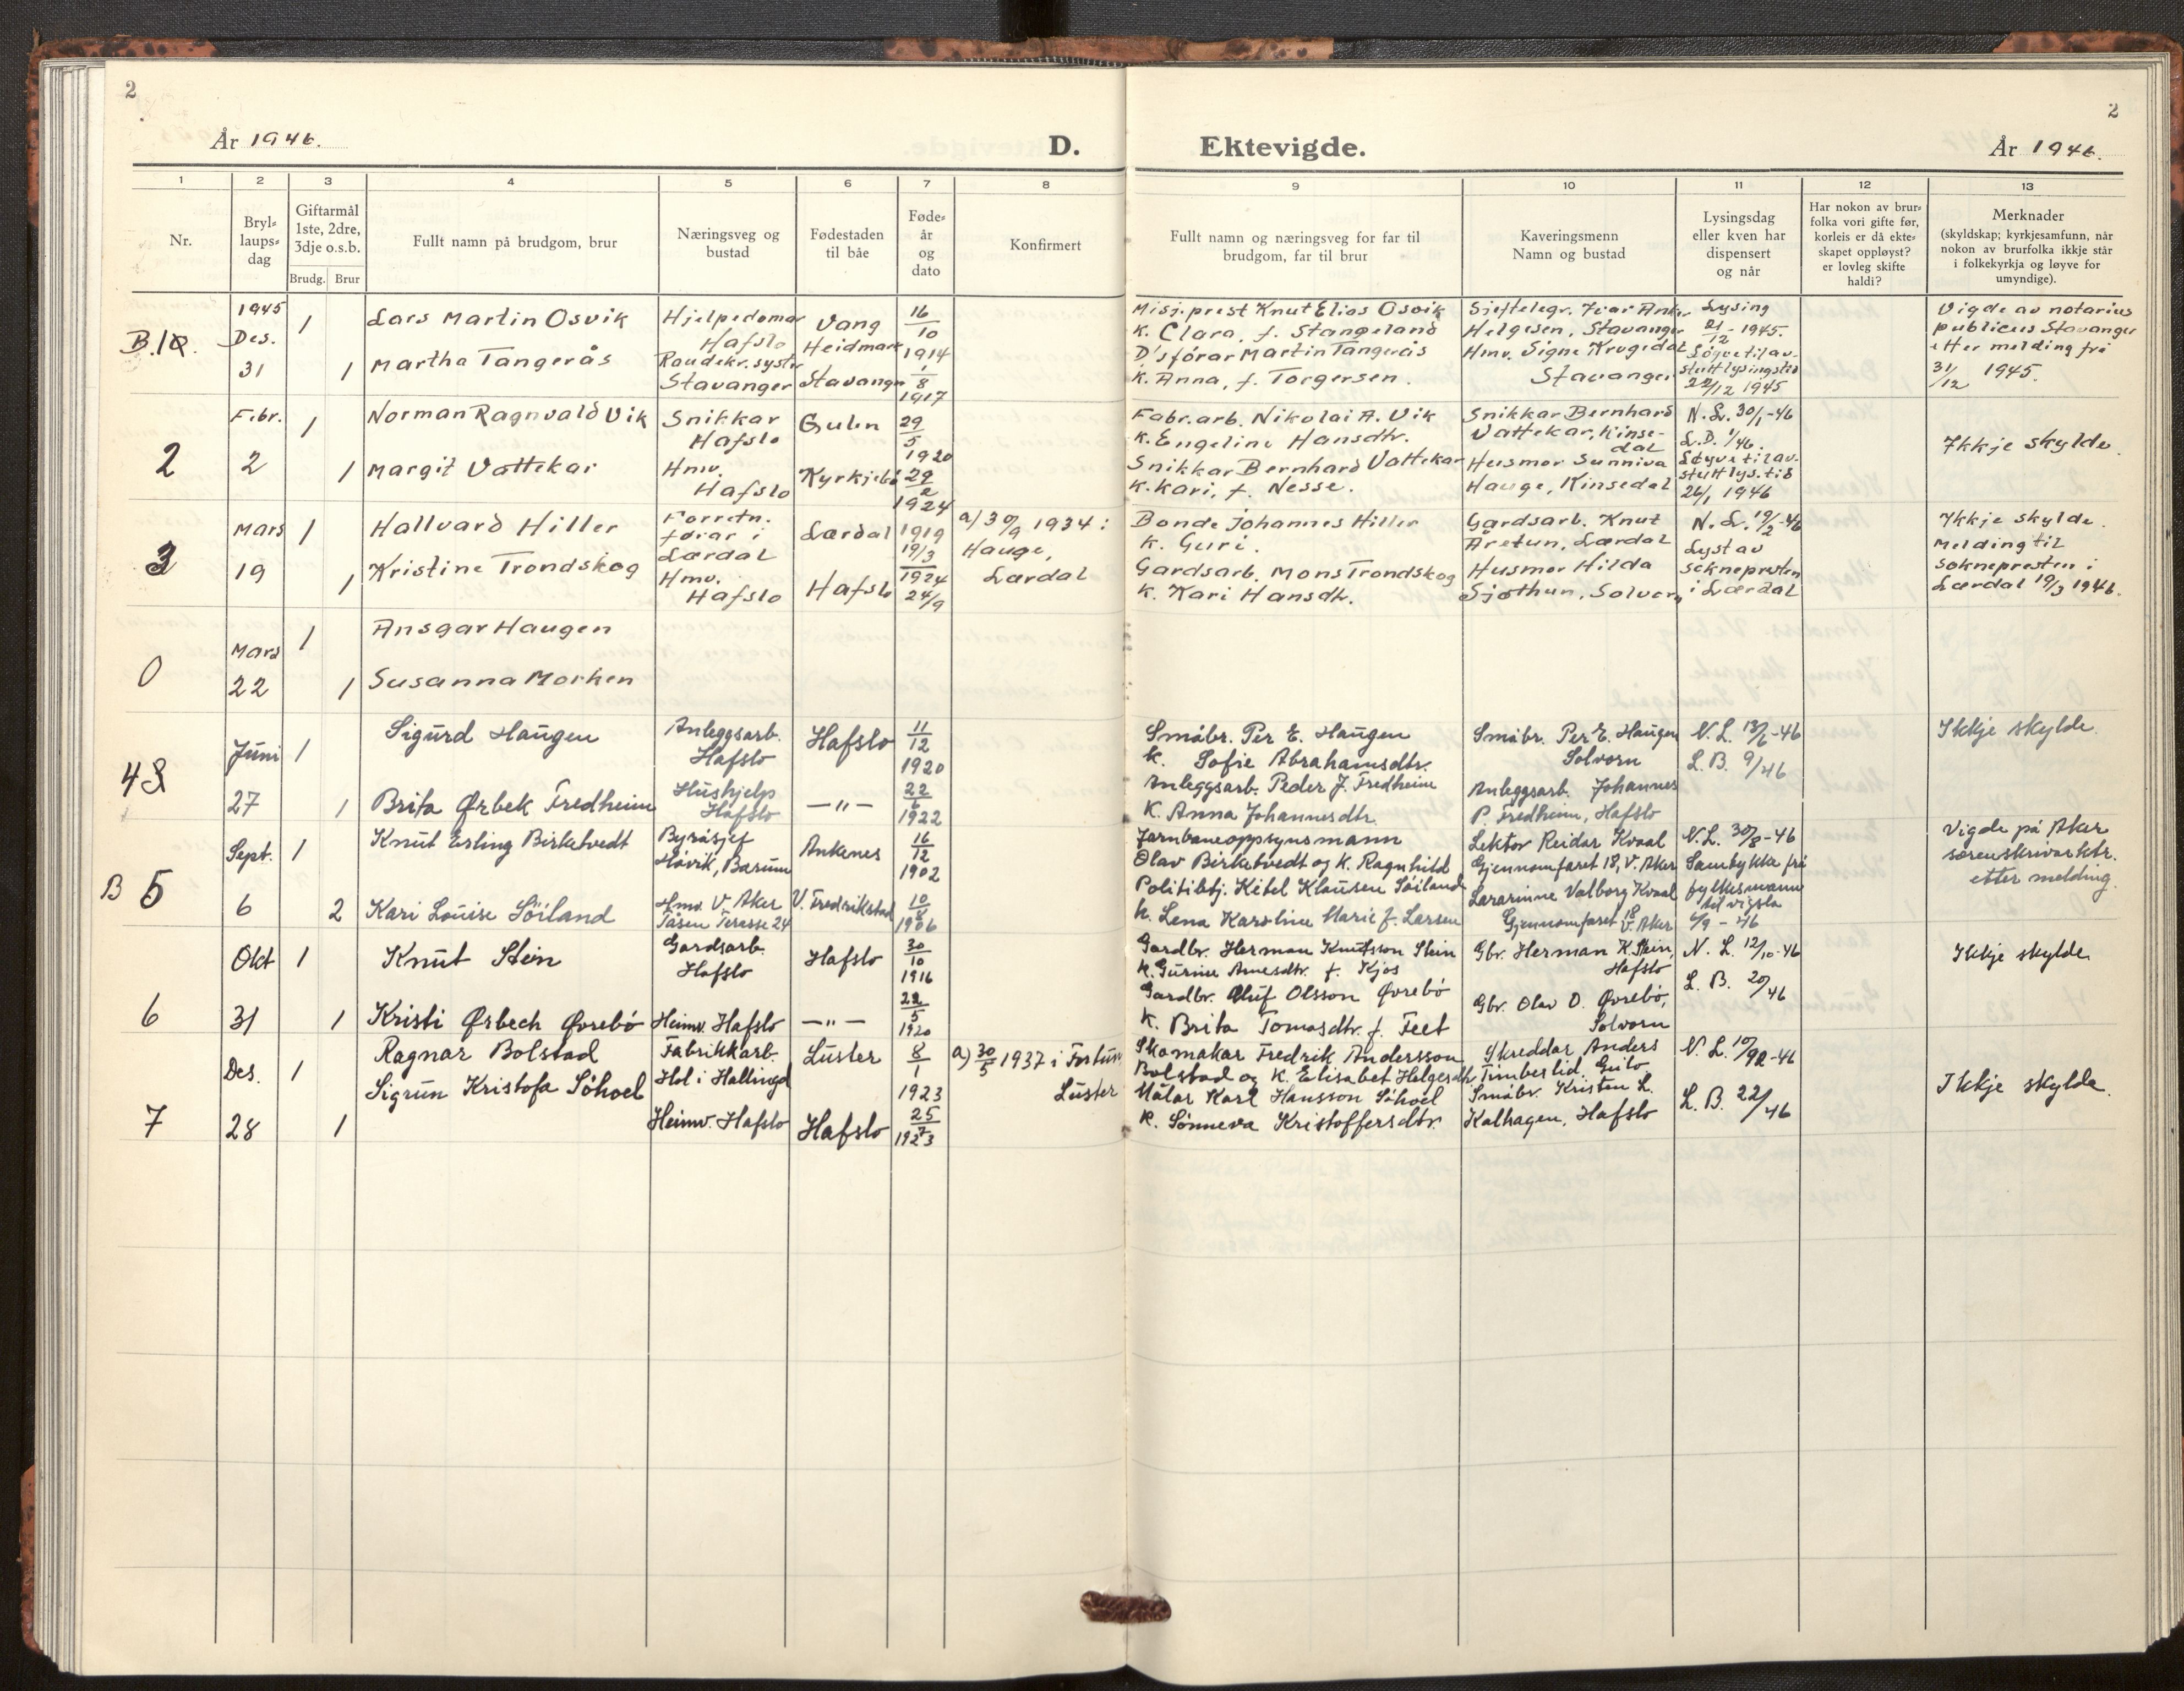 2
År 1946.
D.
Ektevigde.
2
År 1946.
1 2 3 4 5 6 7 8 9 10 11 12 13
Nr.
Bryl-
laups-
dag
Giftarmål
1ste, 2dre,
3dje o.s.b.
Brudg. Brur
Fullt namn på brudgom, brur
Næringsveg og
bustad
Fødestaden
til båe
Føde-
år
og
dato
Konfirmert
Fullt namn og næringsveg for far til
brudgom, far til brur
Kaveringsmenn
Namn og bustad
Lysingsdag
eller kven har
dispensert
og når
Har nokon av brur-
folka vori gifte før,
korleis er då ekte-
skapet oppløyst?
er lovleg skifte
haldi?
Merknader
(skyldskap; kyrkjesamfunn, når
nokon av brurfolka ikkje står
i folkekyrkja og løyve for
umyndige).
B.1
1945
Des.
31
1
1
Lars Martin Osvik
Martha Tangerås
Hjelpedomar
Hafslo
Raudekr.syster
Stavanger
Vang
Heidmark
Stavanger
16/10
1914
1/8
1917
Misj.prest Knut Elias Osvik
k. Clara, f. Stangeland
D'sførar Martin Tangerås
k. Anna, f. Torgersen.
Helgesen, Stavanger
Hmv. Signe Krogedal
Stavanger
Lysing
21/12 - 1945.
Løyve til av-
stutt lysingstid
22/12 1945
Vigde av notarius
publicus Stavanger
etter melding frå
31/12 1945.
2
Febr.
2
1
1
Norman Ragnvald Vik
Margit Vattekar
Snikkar
Hafslo
Hmv.
Hafslo
Gulen
Kyrkjebø
29/5
1920
29/2
1924
Fabr.arb. Nikolai A. Vik
k. Engeline Hansdtr.
Snikkar Bernhard Vattekar
k. Kari, f. Nesse.
Snikkar Bernhard
Vattekar, Kinse-
dal
Husmor Sunniva
Hauge, Kinsedal
N.L. 30/1-46
L.D. 1/46.
Løyve til av-
stutt lys.tid
26/1 1946
Ikkje skylde.
3
Mars
19
1
1
Hallvard Hiller
Kristine Trondskog
Forretn.
førar i
Lærdal
Hmv.
Hafslo
Lærdal
Hafslo
1919
19/3
1924
24/9
a) 30/9 1934 i
Hauge,
Lærdal
Bonde Johannes Hiller
k. Guri.
Gardsarb. Mons Trondskog
k. Kari Hansdtr.
Gardsarb. Knut
Åretun, Lærdal
Husmor Hilda
Sjøthun, Solvorn
N.L. 19/2-46
Lyst av
soknepresten
i Lærdal
Ikkje skylde.
Melding til
soknepresten i
Lærdal 19/3 1946.
0
Mars
22
1
1
Ansgar Haugen
Susanna Morken
4
Juni
27
1
1
Sigurd Haugen
Brita Ørbek Fredheim
Anleggsarb.
Hafslo
Hushjelp
Hafslo
Hafslo
—"—
11/12
1920
22/6
1922
Småbr. Per E. Haugen
k. Sofie Abrahamsdtr.
Anleggsarb. Peder J. Fredheim
K. Anna Johannesdtr.
Småbr. Per E. Haugen
Solvorn
Anleggsarb. Johannes
P. Fredheim, Hafslo
N.L. 13/6-46
L.B. 9/46
Ikkje skylde.
B 5
Sept.
6
1
2
Knut Erling Birketvedt
Kari Louise Söiland
Byråsjef
Høvik, Bærum
Hmv. V. Aker
Tåsen Terasse 24
Ankenes
V. Fredrikstad
16/12
1902
10/8
1906
Jarnbaneoppsynsmann
Olav Birketvedt og k. Ragnhild
Politibtj. Ketel Klausen Söiland
k. Lena Karoline Marie f. Larsen
Lektor Reidar Kvaal
Gjennomfaret 18, V. Aker
Lærarinne Valborg Kvaal
Gjennomfaret 18
V. Aker
N.L. 30/8-46
Samtykke frå
fylkesmann
til vigsla
6/9 - 46
Vigde på Aker
sorenskrivarktr.
etter melding.
6
Okt
31
1
1
Knut Stein
Kristi Ørbech Øvrebö
Gardsarb.
Hafslo
Heimv. Hafslo
Hafslo
—"—
30/10
1916
22/5
1920
Gardbr. Herman Knutsson Stein
k. Gurine Arnesdtr. f. Kjos
Gardbr. Oluf Olsson Øvrebö
K. Brita Tomasdtr. f. Feet
Gbr. Herman K. Stein,
Hafslo
Gbr. Olav O. Øvrebö,
Solvorn
N.L. 12/10-46
L.B. 20/46
Ikkje skylde
7
Des.
28
1
1
Ragnar Bolstad
Sigrun Kristofa Söhoel
Fabrikkarb.
Hol i Hallingd
Heimv. Hafslo
Luster
Hafslo
8/1
1923
25/7
1923
a) 30/5 1937 i Fortun
Luster
Skomakar Fredrik Andersson
Bolstad og k. Elisabet Helgesdtr
Målar Karl Hansson Söhoel
k. Sønneva Kristoffersdtr.
Skreddar Anders
Timberlid,
Småbr. Kristen L.
Kalhagen, Hafslo
L.B. 22/46
Ikkje skylde.